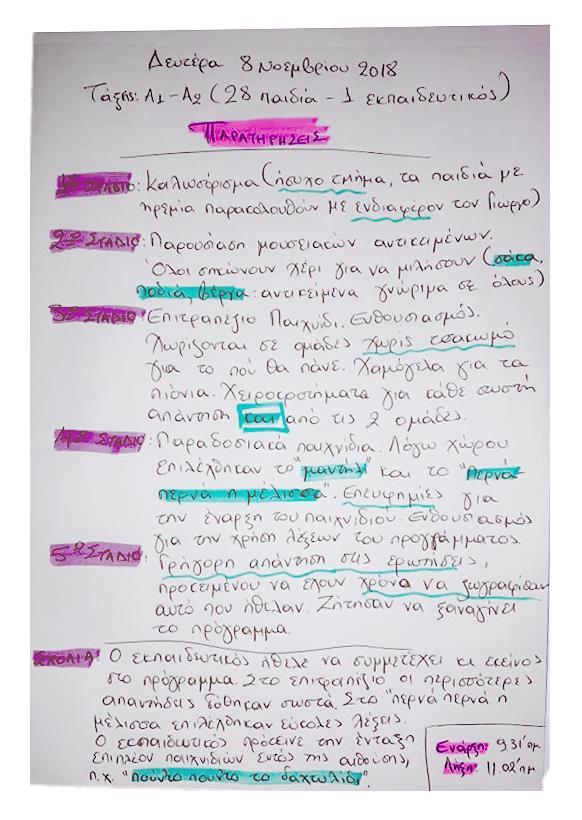 Δευτέρα 8 Νοεμβρίου 2018
Τάξης: Α1-Α2 (28 παιδιά - 1 εκπαιδευτικός)
ΠΑΡΑΤΗΡΗΣΕΙΣ
1ο ΣΤΑΔΙΟ: Καλωσόρισμα (ήσυχο τμήμα, τα παιδιά με
ηρεμία παρακολουθούν με ενδιαφέρον τον Γιώργο)
2ο ΣΤΑΔΙΟ: Παρουσίαση μουσειακών αντικειμένων.
Όλοι σηκώνουν χέρι για να μιλήσουν (σάκα,
ποδιά, βέργα: αντικείμενα γνώριμα σε όλους)
3ο ΣΤΑΔΙΟ: Επιτραπέζιο Παιχνίδι. Ενθουσιασμός.
Χωρίζονται σε ομάδες χωρίς τσακωμό
για το πού θα πάνε. Χαμόγελα για τα
πιόνια. Χειροκροτήματα για κάθε σωστή
απάντηση και από τις 2 ομάδες.
4ο ΣΤΑΔΙΟ: Παραδοσιακά παιχνίδια. Λόγω χώρου
επιλέχθηκαν το "μαντήλι" και το "Περνά
περνά η μέλισσα". Επευφημίες για
την έναρξη του παιχνιδιού. Ενθουσιασμός
για την χρήση λέξεων του προγράμματος.
5ο ΣΤΑΔΙΟ: Γρήγορη απάντηση στις ερωτήσεις,
προκειμένου να έχουν χρόνο να ζωγραφίσουν
αυτό που ήθελαν. Ζήτησαν να ξαναγίνει
το πρόγραμμα.
ΣΧΟΛΙΑ: Ο εκπαιδευτικός ήθελε να συμμετέχει κι εκείνος
στο πρόγραμμα. Στο επιτραπέζιο οι περισσότερες
απαντήσεις δόθηκαν σωστά. Στο "περνά περνά η
μέλισσα επιλέχθηκαν εύκολες λέξεις.
Ο εκπαιδευτικός πρότεινε την ένταξη
επιπλέον παιχνιδιών εντός της αίθουσης,
π.χ. "πούντο πούντο το δαχτυλίδι".
Έναρξη: 9.31' πμ
Λήξη: 11.02' πμ